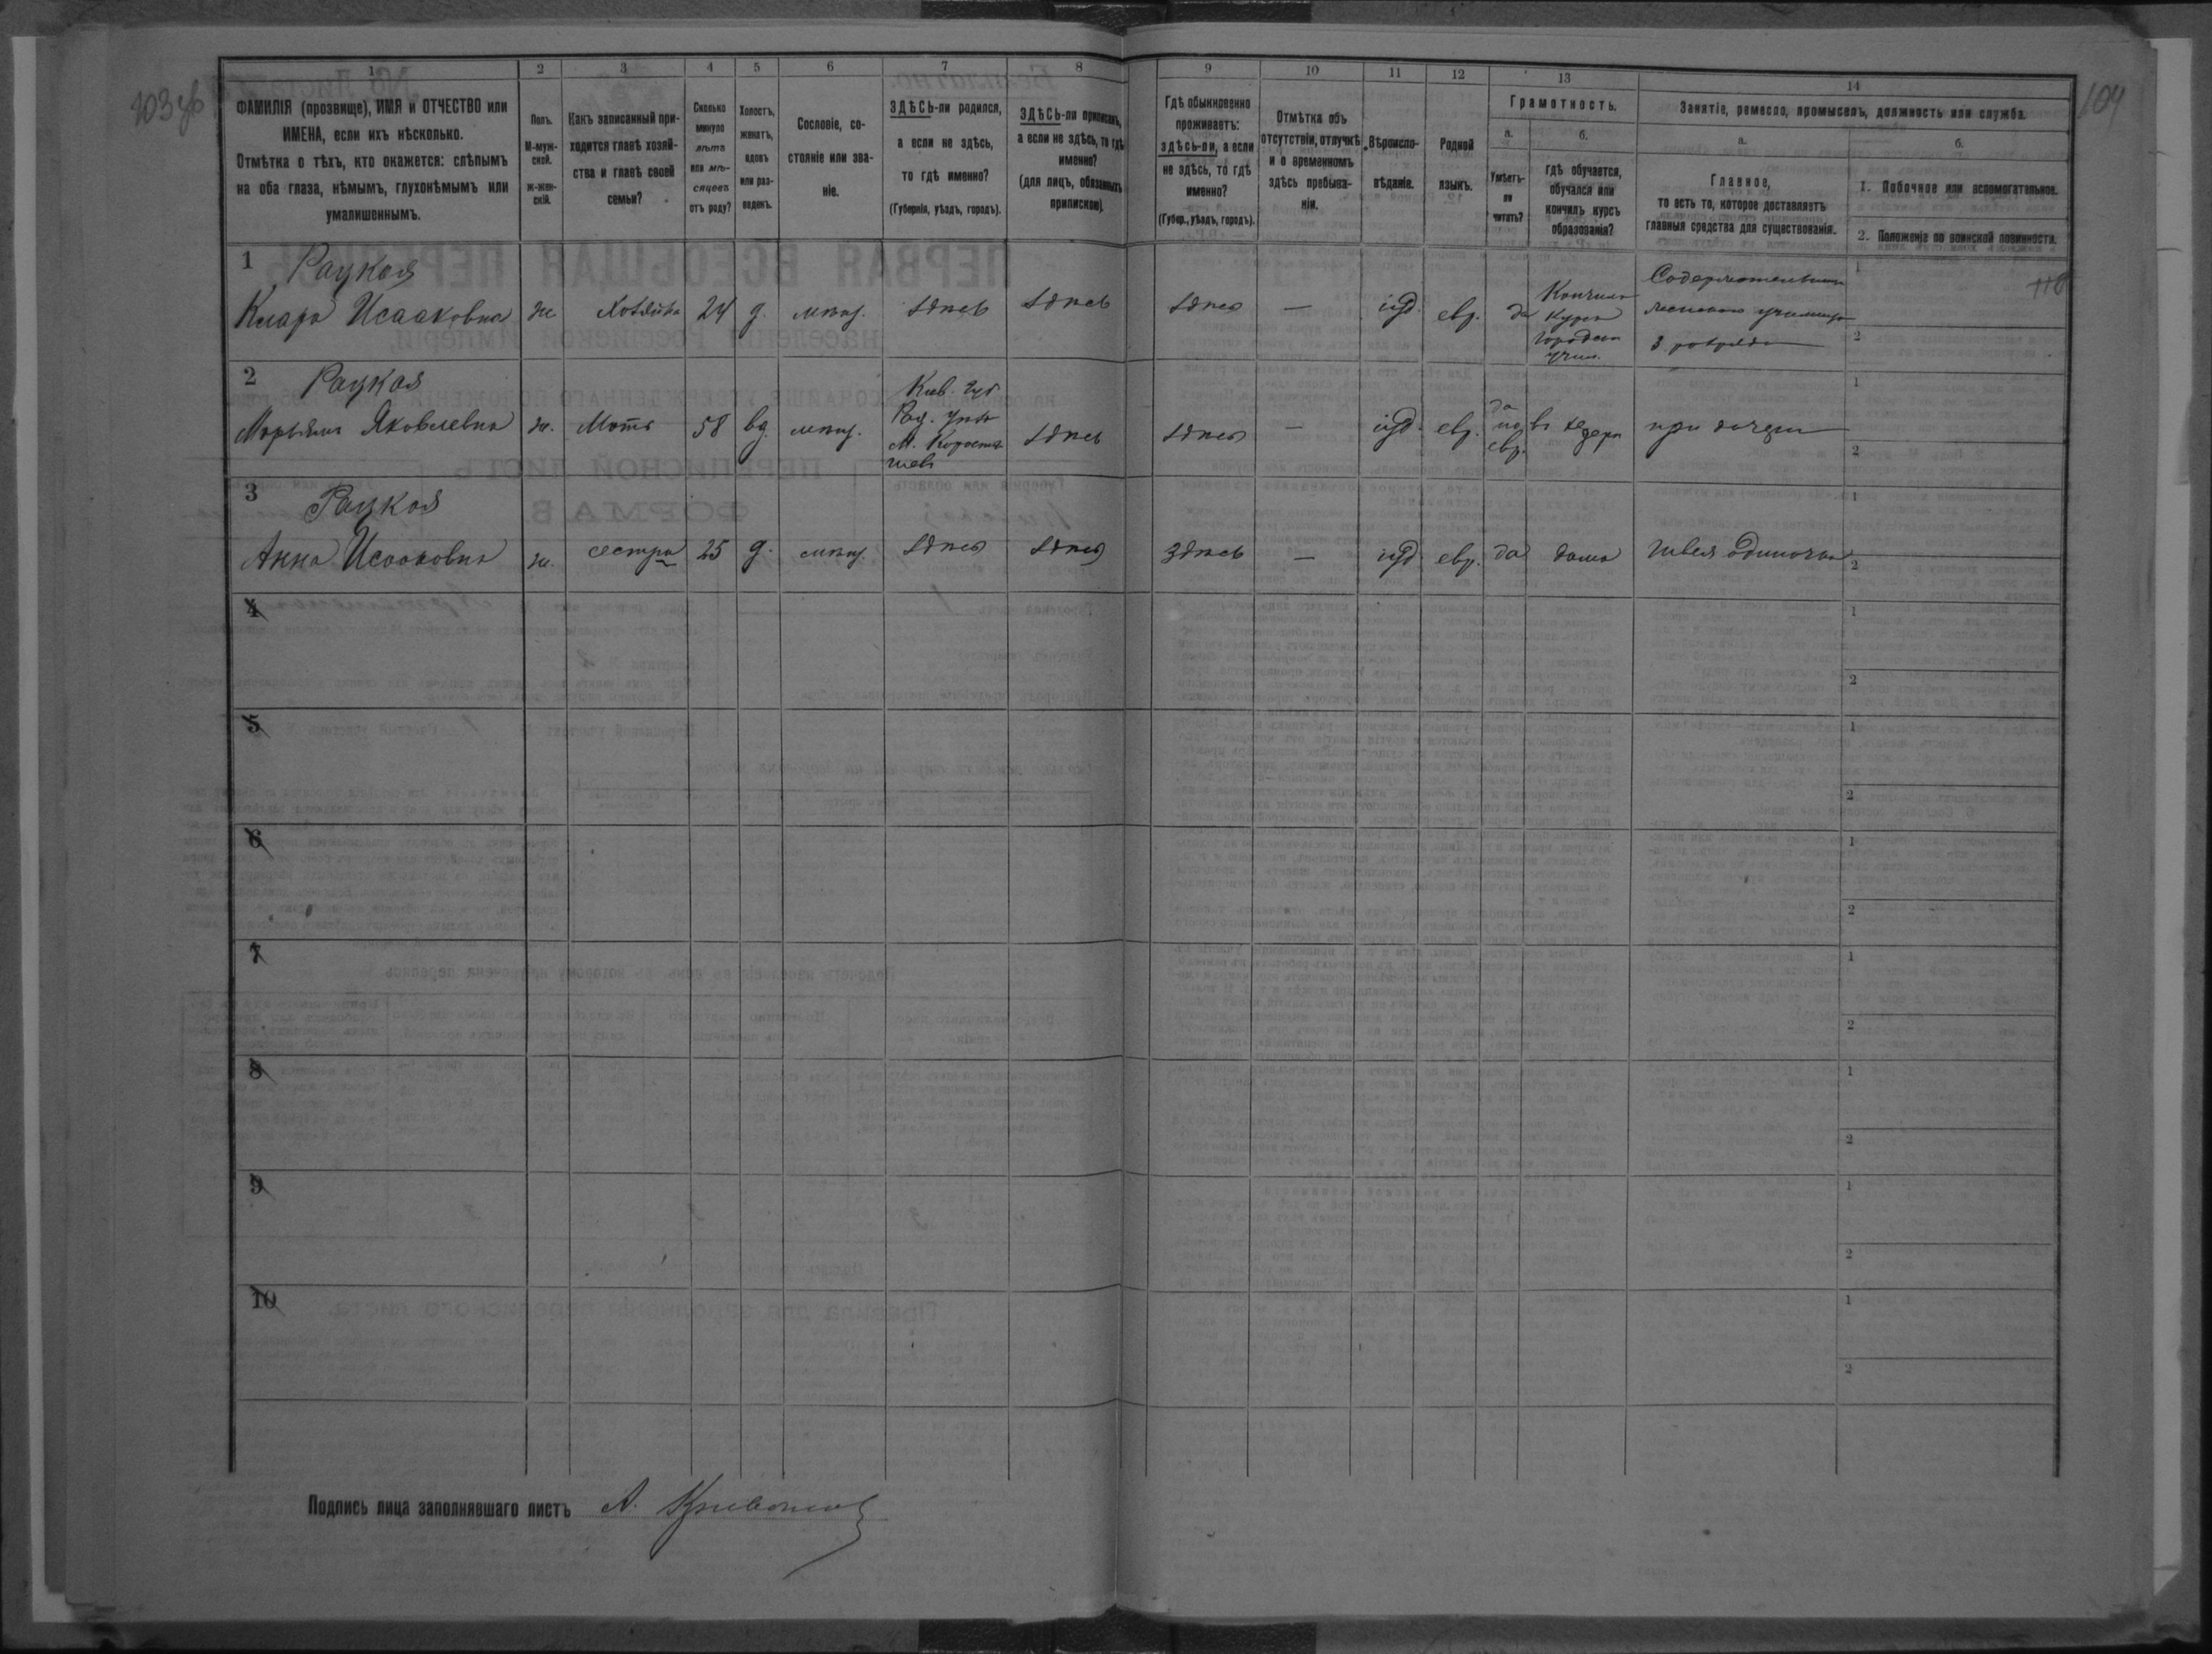 103 об
104
118
1
2
3
4
5
6
7
8
9
10
11
12
13
14
ФАМИЛІЯ (прозвище), ИМЯ и ОТЧЕСТВО или
ИМЕНА, если ихъ нѣсколько.
Отмѣтка о тѣхъ, кто окажется: слѣпымъ
на оба глаза, нѣмымъ, глухонѣмымъ или
умалишеннымъ.
Полъ.
М-муж-
ской.
Ж-жен-
скій.
Какъ записанный при-
ходится главѣ хозяй-
ства и главѣ своей
семьи?
Сколько
минуло
лѣтъ
или мѣ-
сяцевъ
отъ роду?
Холостъ,
женатъ,
вдовъ
или раз-
веденъ.
Сословіе, со-
стояніе или зва-
ніе.
ЗДѢСЬ-ли родился,
а если не здѣсь,
то гдѣ именно?
(Губернія, уѣздъ, городъ).
ЗДѢСЬ-ли приписанъ,
а если не здѣсь, то гдѣ
именно?
(для лицъ, обязанныхъ
припискою).
Гдѣ обыкновенно
проживаетъ:
здѣсь-ли, а если
не здѣсь, то гдѣ
именно?
(Губер., уѣздъ, городъ).
Отмѣтка объ
отсутствіи, отлучкѣ
и о временномъ
здѣсь пребыва-
ніи.
Вѣроиспо-
вѣданіе.
Родной
языкъ.
Грамотность.
а.
Умѣетъ-
ли
читать?
б.
гдѣ обучается,
обучался или
кончилъ курсъ
образованія?
Занятіе, ремесло, промыселъ, должность или служба.
а.
Главное,
то есть то, которое доставляетъ
главныя средства для существованія.
б.
1. Побочное или вспомогательное.
2. Положеніе по воинской повинности.
1 Рацкая
Клара Исааковна ж Хозяйка 24 д. мѣщ. здѣсь здѣсь здѣсь — іуд. евр. да Кончила
курсъ
Городск
учил.
Содержательница
училища
3 разряда
1
2
2 Рацкая
Яковлевна ж. Мать 58 вд. мѣщ.
Кіев. губ
Рад. уѣзд
М. Коросты-
шевъ
здѣсь здѣсь — іуд. евр.
да
по
евр.
въ хедерѣ при дочери
1
2
3 Рацкая
Анна Исааковна ж. сестра 25 д. мѣщ. здѣсь здѣсь здѣсь — іуд. евр. да дома швея одиночка
1
2
4
1
2
5
1
2
6
1
2
7
1
2
8
1
2
9
1
2
10
1
2
Подпись лица заполнявшаго листъ А.